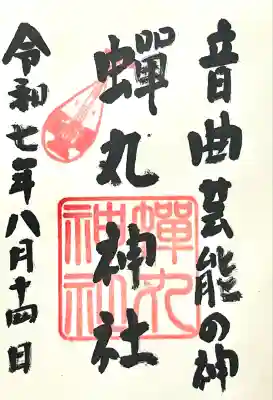 音曲芸能の神
蟬丸神社
蟬丸
神社
令和七年八月十四日